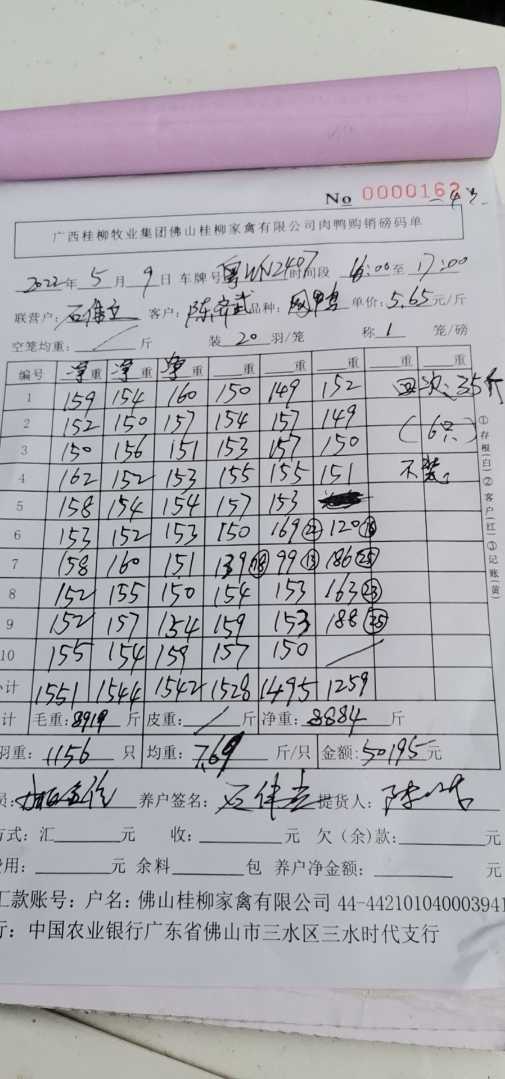 No 0000162
广西桂柳牧业集团佛山桂柳家禽有限公司肉鸭购销磅码单
2022年 5月 9日 车牌号 粤WN2497 时间段 16:00至 17:00
联营户: 石伟立 客户: 陈 品种: 单价: 5.65元/斤
空笼均重: / 斤 装 20 羽/笼 称 1 笼/磅
编号 净重 净重 净重 重 重 重 重 重
1 159 154 160 150 149 152 四次:35斤
2 152 150 157 154 157 149 (6只)
3 150 156 151 153 157 150
4 162 152 153 155 155 151 不装
5 158 154 154 157 153
6 153 152 153 150 169 22 120 16
7 158 160 151 139 18 99 13 186 25
8 152 155 150 154 153 163 23
9 152 157 154 159 153 188 25
10 155 154 159 157 150 /
小计 1551 1544 1542 1528 1495 1259
计 毛重: 8919 斤 皮重: / 斤 净重: 8884 斤
羽重: 1156 只 均重: 7.69 斤/只 金额: 50195元
员: 养户签名: 石伟立 提货人: 陈
方式: 汇 元 收: 元 欠(余)款: 元
费用: 元 余料 包 养户净金额: 元
汇款账号: 户名: 佛山桂柳家禽有限公司 44-442101040003941
行: 中国农业银行广东省佛山市三水区三水时代支行
①存根(白)②客户(红)③记账(黄)